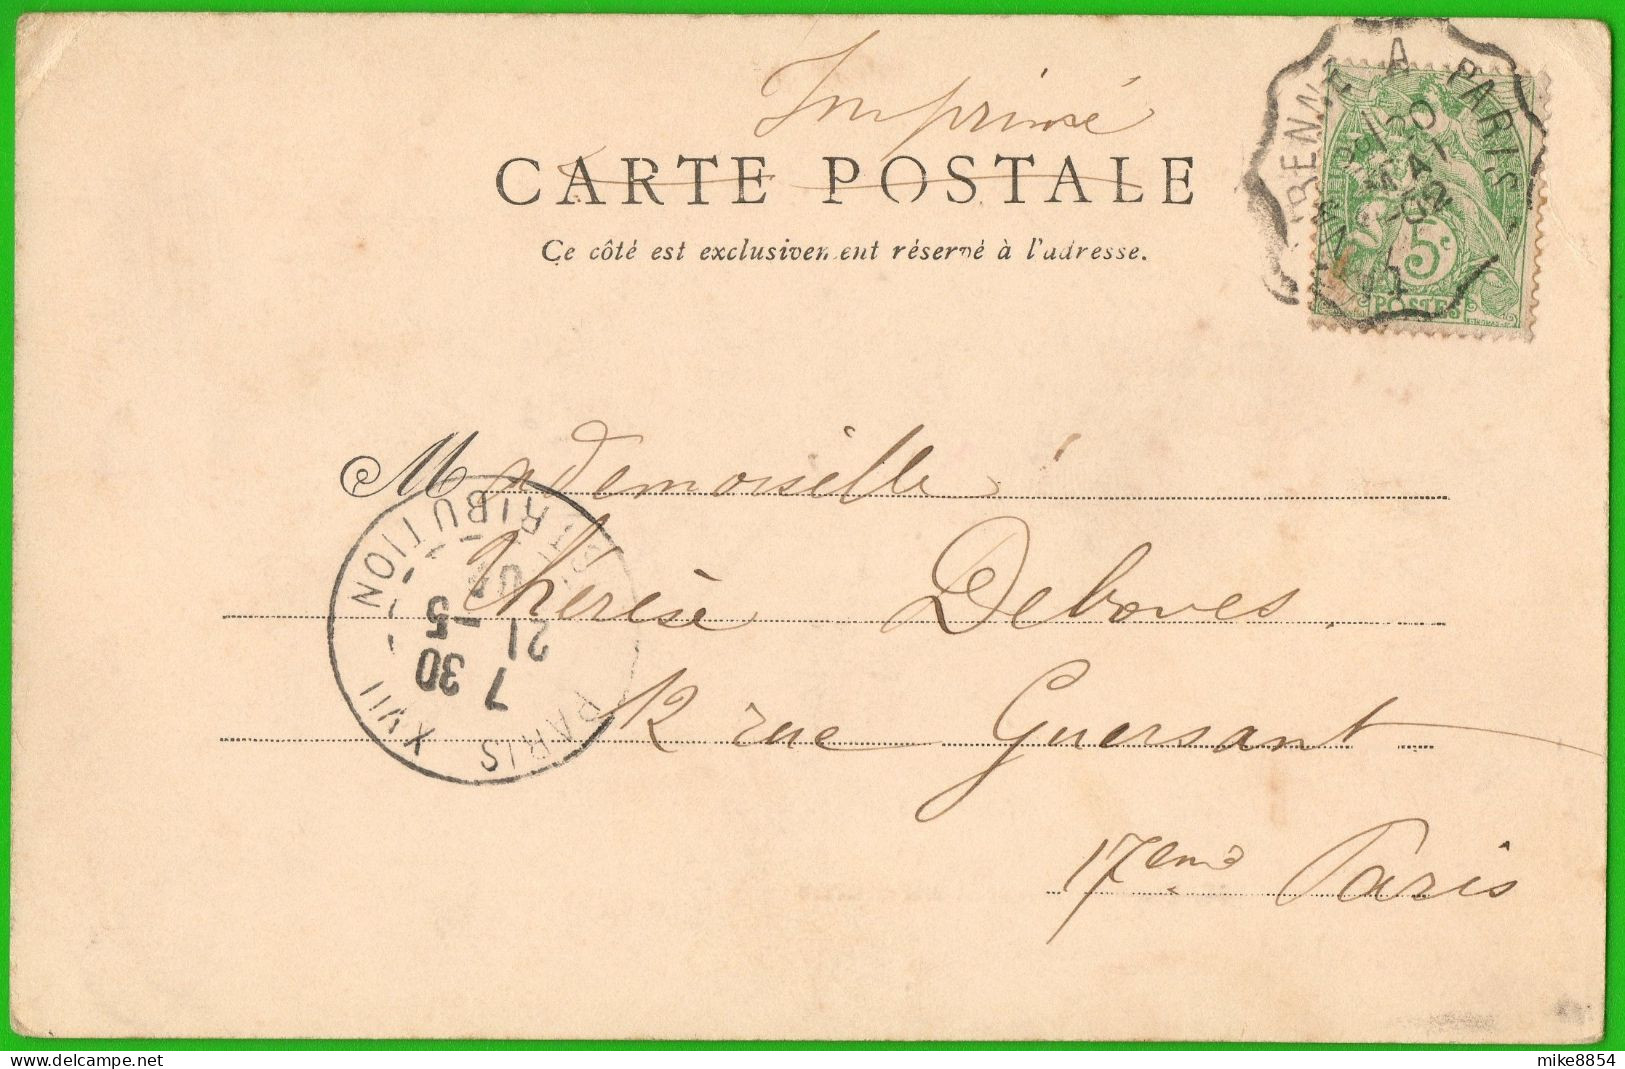 Imprimé
CARTE POSTALE
Ce côté est exclusivement réservé à l'adresse.
A PARIS
20
MAI
02
5c
POSTES
Mademoiselle
Thérèse Deboves.
12 rue Guersant
17eme Paris
DISTRIBUTION
PARIS XVII
7 30
21 5
02
mike8854